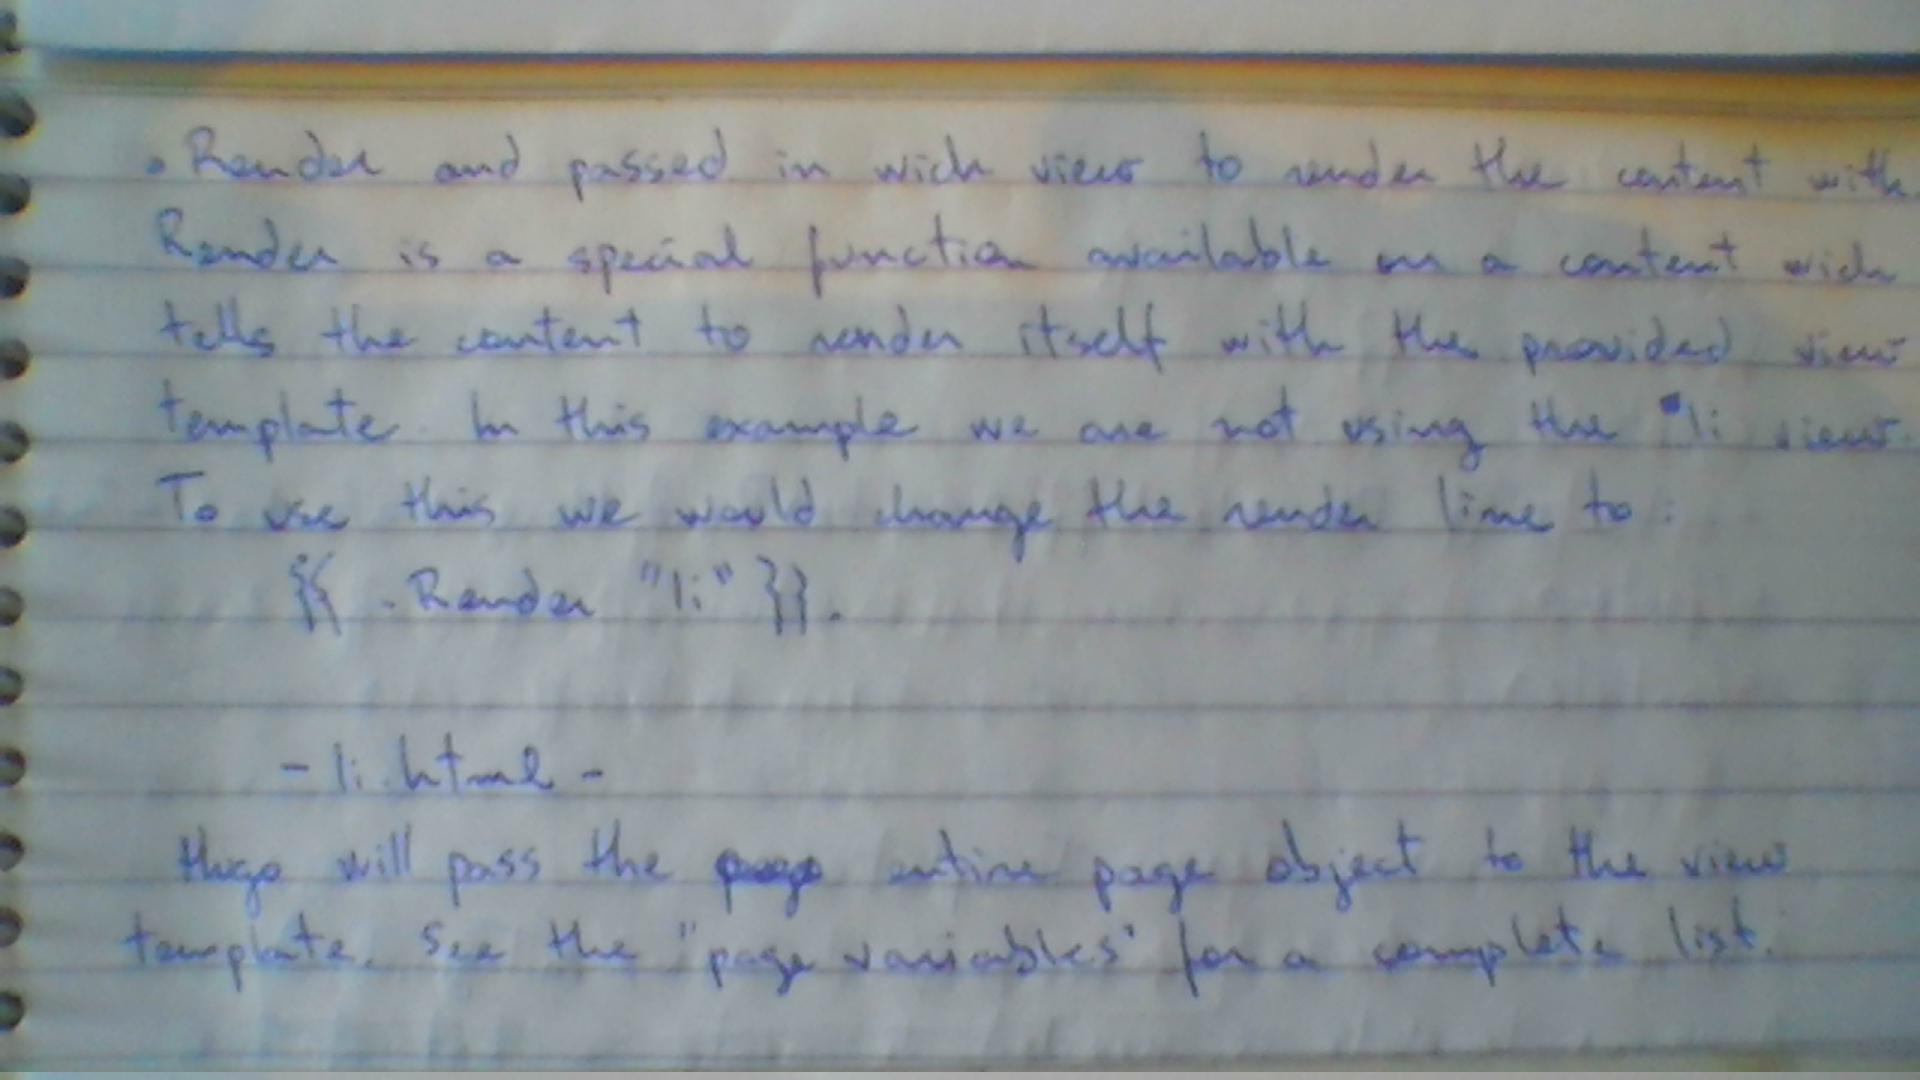 . Render and passed in wich view to render the content with.
Render is a special function available on a content wich
tells the content to render itself with the provided view
template. In this example we are not using the "li view.
To use this we would change the render line to:
{{ .Render "li" }}.
- li.html -
Hugo will pass the entire page object to the view
template. See the "page variables" for a complete list.